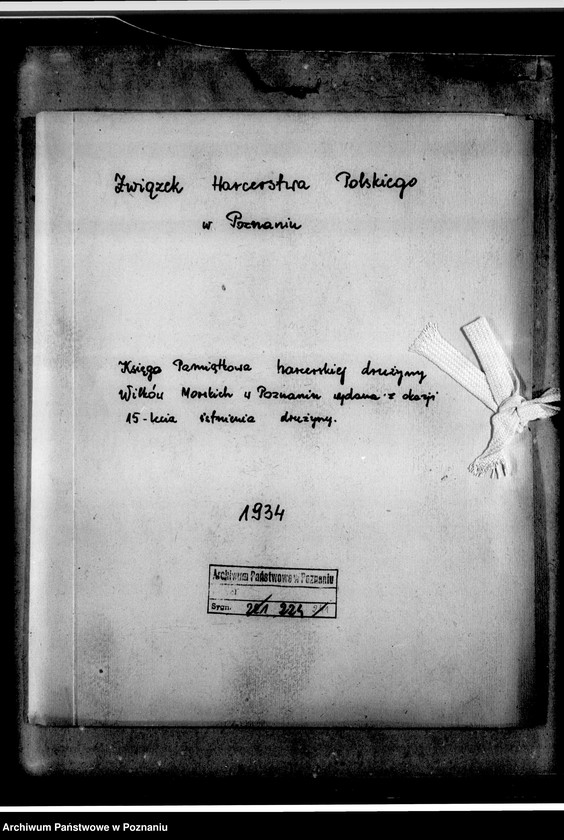 Związek Harcerstwa Polskiego
w Poznaniu
Księga Pamiątkowa harcerskiej drużyny
Wilków Morskich w Poznaniu wydana z okazji
15-lecia istnienia drużyny.
1934
Archiwum Państwowe w Poznaniu
Sygn. 224
Archiwum Państwowe w Poznaniu